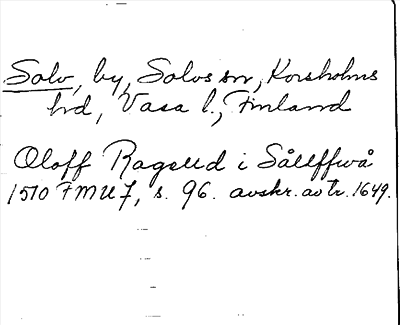 Solv, by, Solvs sn, Korsholms
hd, Vasa l., Finland
Oloff Ragelld i Sållffwå
1510 FMU 7, s. 96. avskr. av tr. 1649.